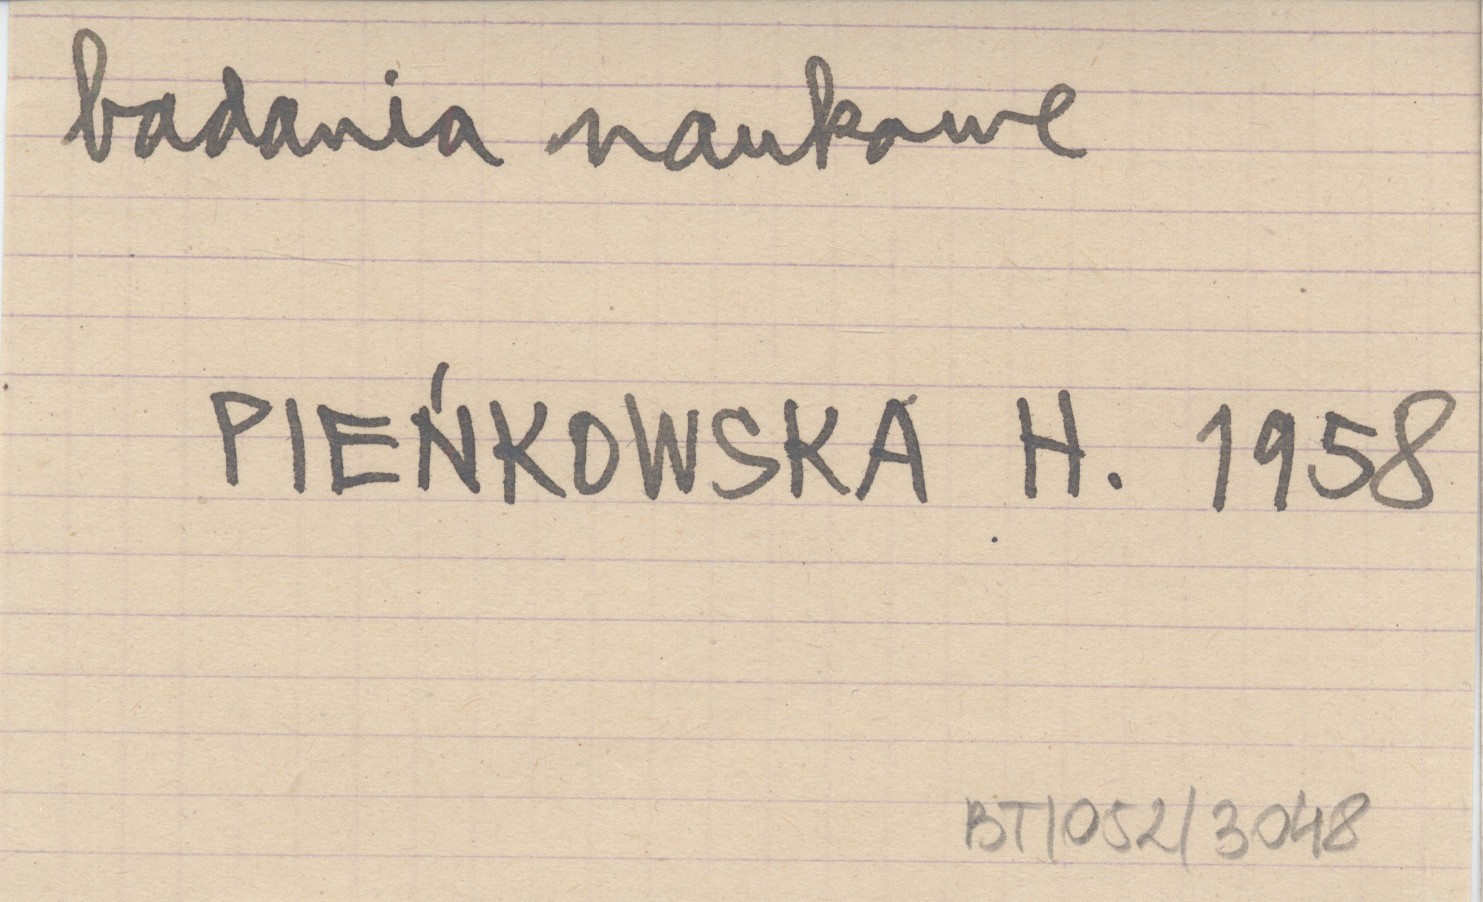 badania naukowe
PIEŃKOWSKA H. 1958
BT/052/3048